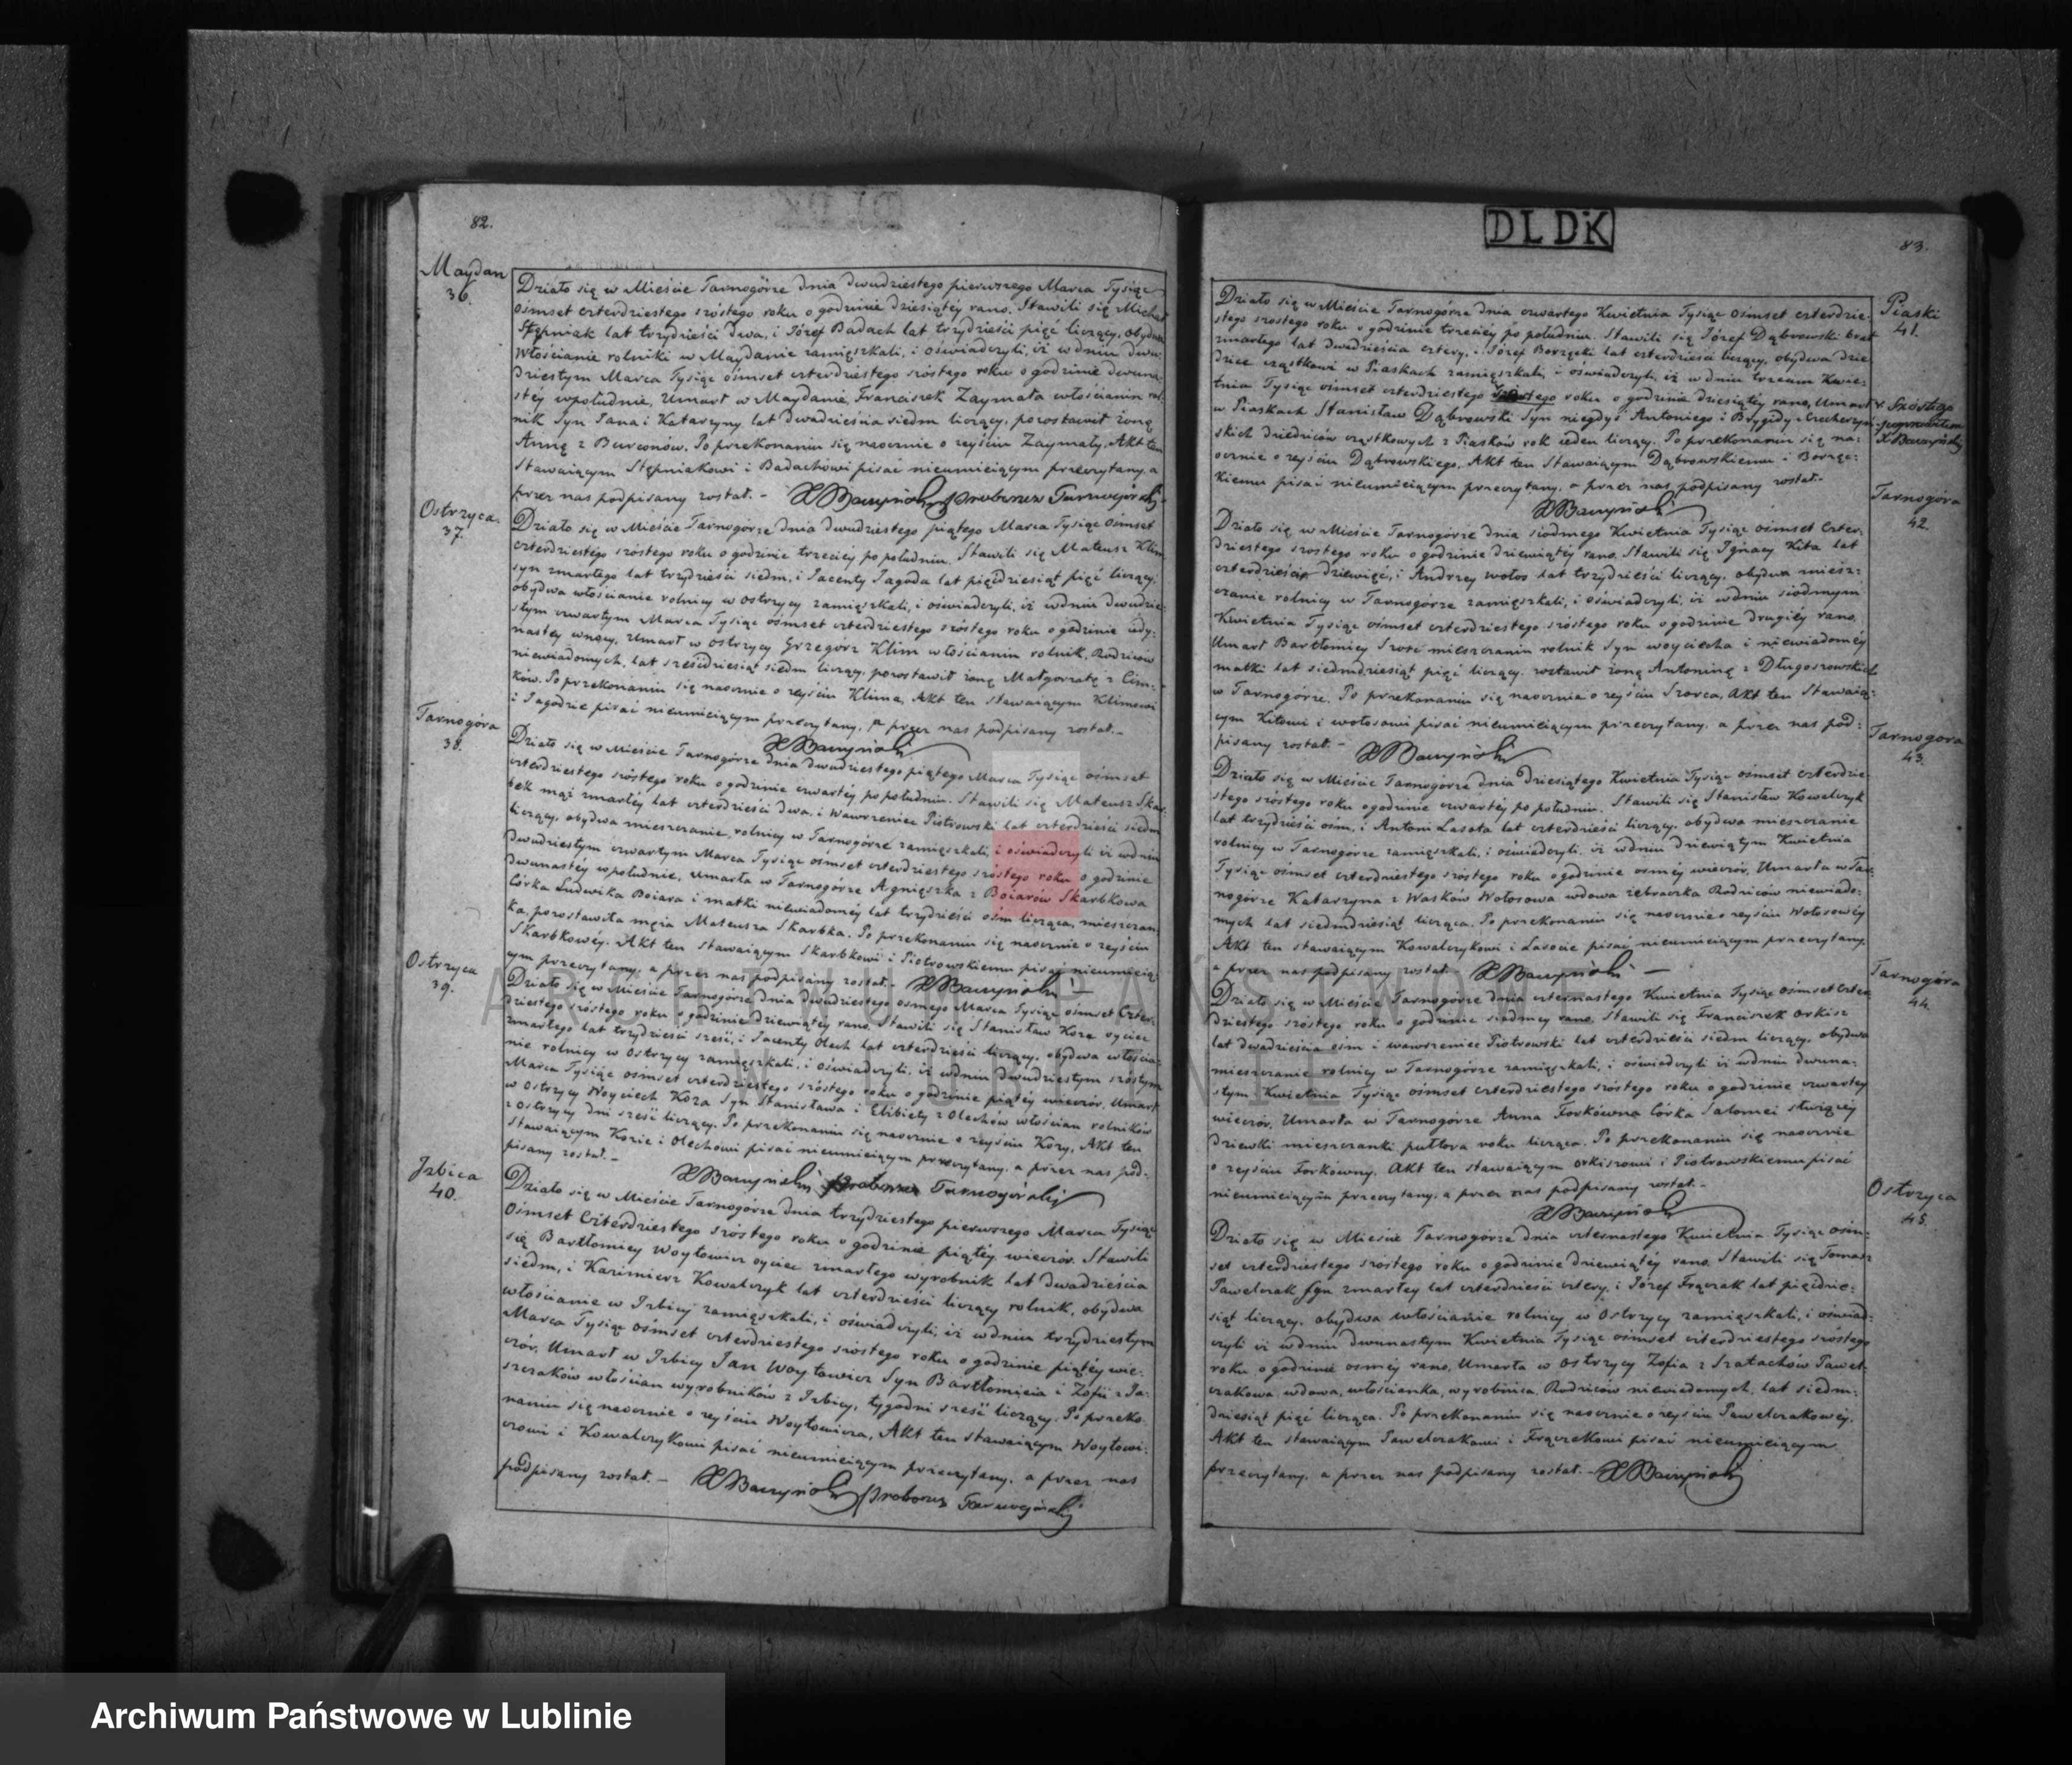 82.
Maydan
36.
Działo się w Mieście Tarnogórze dnia dwudziestego pierwszego Marca Tysiąc
ośmset czterdziestego szóstego roku o godzinie dziesiątéy rano. Stawili się Michał
Stępniak lat trzydzieści dwa, i Józef Badach lat trzydzieści pięć liczący, obydwa
Włościanie rolniki w Maydanie zamięszkali, i oświadczyli, iż w dniu dwu:
dziestym Marca Tysiąc ośmset czterdziestego szóstego roku o godzinie dwuna:
stéy w południe, Umarł w Maydanie Franciszek Zaymała włościanin rol:
nik Syn Jana i Katarzyny lat dwadzieścia siedm liczący, pozostawił żonę
Annę z Burconów. Po przekonaniu się naocznie o zeyściu Zaymały, Akt ten
Stawaiącym Stępniakowi i Badachowi pisać nieumieiącym przeczytany, a
przez nas podpisany został. - X Baczyński Proboszcz Tarnogórski
Ostrzyca.
37.
Działo się w Mieście Tarnogórze dnia dwudziestego piątego Marca Tysiąc ośmset
czterdziestego szóstego roku o godzinie trzeciey po południu. Stawili się Mateusz Klim
syn zmarłego lat trzydzieści siedm, i Jacenty Jagoda lat pięćdziesiąt pięć liczący,
obydwa włościanie rolnicy w Ostrzycy zamięszkali, i oświadczyli, iż w dniu dwudzie:
stym czwartym Marca Tysiąc ośmset czterdziestego szóstego roku o godzinie iedy:
nastéy w nocy, Umarł w Ostrzycy Grzegórz Klim włościanin rolnik, Rodziców
niewiadomych, lat sześćdziesiąt siedm liczący, pozostawił żonę Małgorzatę z Cim:
ków. Po przekonaniu się naocznie o zeyściu Klima, Akt ten stawaiącym Klimowi
i Jagodzie pisać nieumieiącym przeczytany, a przez nas podpisany został. -
X Baczyński
Tarnogóra
38.
Działo się w Mieście Tarnogórze dnia dwudziestego piątego Marca Tysiąc ośmset
czterdziestego szóstego roku o godzinie czwartéy po południu. Stawili się Mateusz Skar:
bek mąż zmarłéy lat czterdzieści dwa, i Wawrzeniec Piotrowski lat czterdzieści siedm
liczący, obydwa mieszczanie, rolnicy w Tarnogórze zamięszkali, i oświadczyli iż w dniu
dwudziestym czwartym Marca Tysiąc ośmset czterdziestego szóstego roku o godzinie
dwunastéy w południe, Umarła w Tarnogórze Agnieszka z Boiarów Skarbkowa
Córka Ludwika Boiara i matki niewiadoméy lat trzydzieści ośm licząca, mieszczan:
ka, pozostawiła męża Mateusza Skarbka. Po przekonaniu się naocznie o zeyściu
Skarbkowéy. Akt ten stawaiącym Skarbkowi i Piotrowskiemu pisać nieumieią:
cym przeczytany, a przez nas podpisany został. - X Baczyński -
Ostrzyca
39.
Działo się w Mieście Tarnogórze dnia dwudziestego ósmego Marca Tysiąc ośmset czter:
dziestego szóstego roku o godzinie dziewiątéy rano. Stawili się Stanisław Koza oyciec
zmarłego lat trzydzieści sześć, i Jacenty Olech lat czterdzieści liczący, obydwa włościa:
nie rolnicy w Ostrzycy zamięszkali, i oświadczyli, iż w dniu dwudziestym szóstym
Marca Tysiąc ośmset czterdziestego szóstego roku o godzinie piątéy wieczór, Umarł
w Ostrzycy Woyciech Koza Syn Stanisława i Elżbiety z Olechów włościan rolników
z Ostrzycy dni sześć liczący. Po przekonaniu się naocznie o zeyściu Kozy, Akt ten
Stawaiącym Kozie i Olechowi pisać nieumieiącym przeczytany, a przez nas pod:
pisany został. - X Baczyński Proboszcz Tarnogórski
Jzbica
40.
Działo się w Mieście Tarnogórze dnia trzydziestego pierwszego Marca Tysiąc
Ośmset Czterdziestego szóstego roku o godzinie piątéy, wieczór. Stawili
się Bartłomiey Woytowicz oyciec zmarłego wyrobnik lat dwadzieścia
siedm, i Kazimierz Kowalczyk lat czterdzieści liczący rolnik, obydwa
włościanie w Jzbicy zamięszkali, i oświadczyli, iż w dniu trzydziestym
Marca Tysiąc ośmset czterdziestego szóstego roku o godzinie piątéy wie:
czór, Umarł w Jzbicy Jan Woytowicz Syn Bartłomieia i Zofii z Ja:
szczaków włościan wyrobników z Jzbicy, tygodni sześć liczący. Po przeko:
naniu się naocznie o zeyściu Woytowicza, Akt ten stawaiącym Woytowi:
czowi i Kowalczykowi pisać nieumieiącym przeczytany, a przez nas
podpisany został. - X Baczyński Proboszcz Tarnogórski
DLDK
83.
Piaski
41.
Działo się w Mieście Tarnogórze dnia czwartego Kwietnia Tysiąc ośmset czterdzie:
stego szóstego roku o godzinie trzeciéy po południu. Stawili się Józef Dąbrowski brat
zmarłego lat dwadzieścia cztery, i Józef Borzęcki lat czterdzieści liczący, obydwa dzie:
dzice cząstkowi w Piaskach zamięszkali, i oświadczyli, iż w dniu trzecim Kwie:
tnia Tysiąc ośmset czterdziestego roku o godzinie dziesiątéy rano, Umarł
w Piaskach Stanisław Dąbrowski Syn niegdyś Antoniego i Brygidy z
skich dziedziców cząstkowych z Piasków rok ieden liczący. Po przekonaniu się na:
ocznie o zeyściu Dąbrowskiego, Akt ten Stawaiącym Dąbrowskiemu i Borzęc:
kiemu pisać nieumieiącym przeczytany, a przez nas podpisany został. -
X Baczyński
Szóstego
poprawiłem
X Baczyński
Tarnogóra
42.
Działo się w Mieście Tarnogórze dnia siódmego Kwietnia Tysiąc ośmset czter:
dziestego szóstego roku o godzinie dziewiątéy rano. Stawili się Ignacy Kita lat
czterdzieści dziewięć, i Andrzey Wołos lat trzydzieści liczący, obydwa miesz:
czanie rolnicy w Tarnogórze zamięszkali, i oświadczyli, iż w dniu siódmym
Kwietnia Tysiąc ośmset czterdziestego szóstego roku o godzinie drugiéy rano,
Umarł Bartłomiey Szorc mieszczanin rolnik Syn Woyciecha i niewiadoméy
matki lat siedmdziesiąt pięć liczący, zostawił żonę Antoninę z Długoszowskich
w Tarnogórze. Po przekonaniu się naocznie o zeyściu Szorca, Akt ten Stawaią:
cym Kitowi i Wołosowi pisać nieumieiącym przeczytany, a przez nas pod:
pisany został. - X Baczyński
Tarnogora
43.
Działo się w Mieście Tarnogórze dnia dziesiątego Kwietnia Tysiąc ośmset czterdzie:
stego szóstego roku o godzinie czwartéy po południu. Stawili się Stanisław Kowalczyk
lat trzydzieści ośm, i Antoni Lasota lat czterdzieści liczący, obydwa mieszczanie
rolnicy w Tarnogórze zamięszkali, i oświadczyli, iż w dniu dziewiątym Kwietnia
Tysiąc ośmset czterdziestego szóstego roku o godzinie ósméy wieczór, Umarła w Tar:
nogórze Katarzyna z Wasków Wołosowa wdowa żebraczka Rodziców niewiado:
mych lat siedmdziesiąt licząca. Po przekonaniu się naocznie o zeyściu Wołosowéy
Akt ten stawaiącym Kowalczykowi i Lasocie pisać nieumieiącym przeczytany,
a przez nas podpisany został. X Baczyński -
Tarnogóra
44.
Działo się w Mieście Tarnogórze dnia czternastego Kwietnia Tysiąc ośmset czter:
dziestego szóstego roku o godzinie siódméy rano. Stawili się Franciszek Orkisz
lat dwadzieścia ośm i Wawrzeniec Piotrowski lat czterdzieści siedm liczący, obydwa
mieszczanie rolnicy w Tarnogórze zamięszkali, i oświadczyli iż w dniu dwuna:
stym Kwietnia Tysiąc ośmset czterdziestego szóstego roku o godzinie czwartéy
wieczór, Umarła w Tarnogórze Anna Forkówna Córka Salomei służącéy
dziewki mieszczanki półtora roku licząca. Po przekonaniu się naocznie
o zeyściu Forkówny. Akt ten stawaiącym Orkiszowi i Piotrowskiemu pisać
nieumieiącym przeczytany, a przez nas podpisany został. -
X Baczyński
Ostrzyca
45.
Działo się w Mieście Tarnogórze dnia czternastego Kwietnia Tysiąc ośm:
set czterdziestego szóstego roku o godzinie dziewiątéy rano. Stawili się Tomasz
Pawelczak syn zmarłéy lat czterdzieści cztery, i Józef Frączak lat pięćdzie:
siąt liczący, obydwa włościanie rolnicy w Ostrzycy zamięszkali, i oświad:
czyli iż w dniu dwunastym Kwietnia Tysiąc ośmset czterdziestego szóstego
roku o godzinie ósméy rano, Umarła w Ostrzycy Zofia z Szałachów Pawel:
czakowa wdowa, włościanka, wyrobnica, Rodziców niewiadomych, lat siedm:
dziesiąt pięć licząca. Po przekonaniu się naocznie o zeyściu Pawelczakowéy,
Akt ten stawaiącym Pawelczakowi i Frączakowi pisać nieumieiącym
przeczytany, a przez nas podpisany został. - X Baczyński
ARCHIWUM PAŃSTWOWE
W LUBLINIE
Archiwum Państwowe w Lublinie